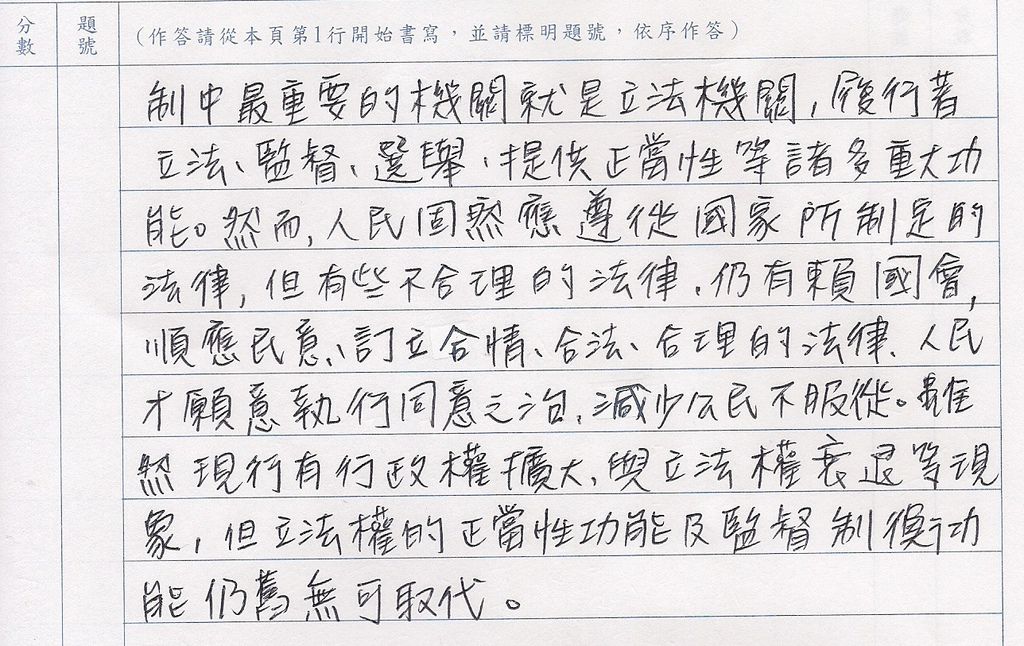 分數 題號 (作答請從本頁第1行開始書寫，並請標明題號，依序作答)
制中最重要的機關就是立法機關，履行著
立法、監督、選舉、提供正當性等諸多重大功
能。然而，人民固然應遵從國家所制定的
法律，但有些不合理的法律，仍有賴國會，
順應民意、訂立合情、合法、合理的法律、人民
才願意執行同意之治，減少公民不服從。雖
然現行有行政權擴大，與立法權衰退等現
象，但立法權的正當性功能及監督制衡功
能仍舊無可取代。